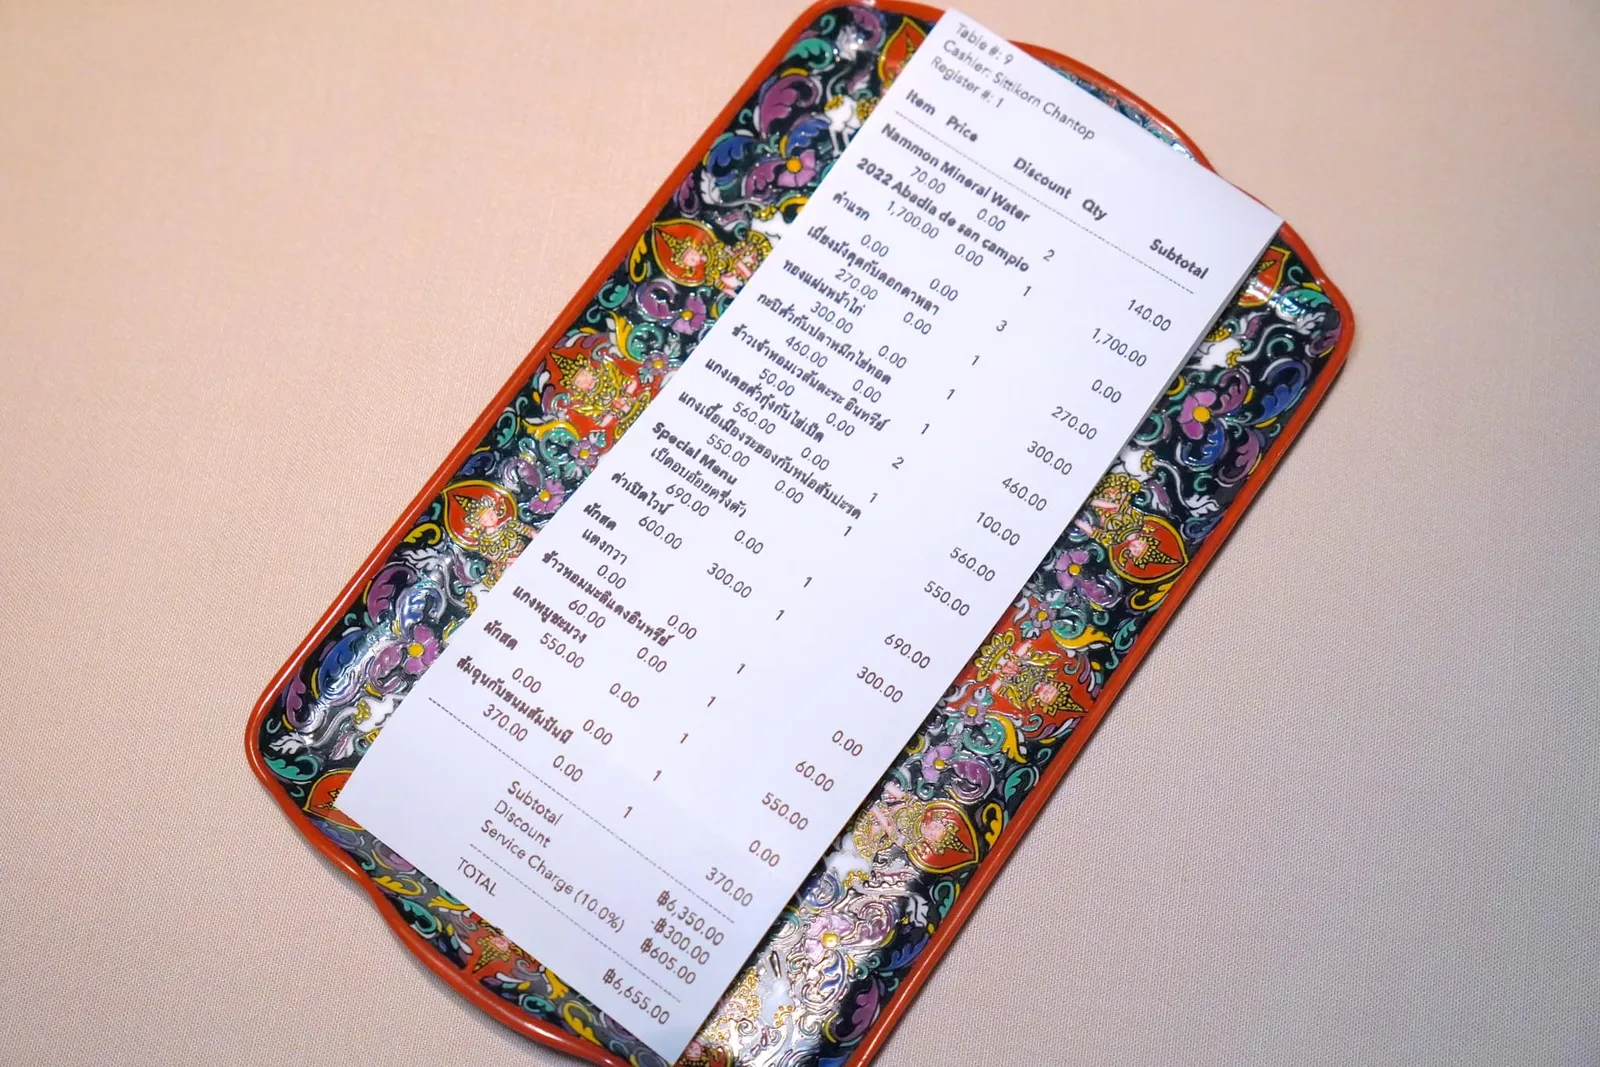 Table #: 9
Cashier: Sittikorn Chantop
Register #: 1
Item Price Discount Qty Subtotal
Nammon Mineral Water
70.00 0.00 2 140.00
2022 Abadia de san campio
1,700.00 0.00 1 1,700.00
ค่าแรก
0.00 0.00 3 0.00
เมี่ยงมังคุดกับดอกดาหลา
270.00 0.00 1 270.00
ทองแผ่นหน้าไก่
300.00 0.00 1 300.00
กะปิคั่วกับปลาหมึกไข่ทอด
460.00 0.00 1 460.00
ข้าวเจ้าหอมเวสันตะระ อินทรีย์
50.00 0.00 2 100.00
แกงเคยคั่วกุ้งกับไข่เป็ด
560.00 0.00 1 560.00
แกงเนื้อเมืองระยองกับหน่อสับปะรด
550.00 0.00 1 550.00
Special Menu
เป็ดอบอ้อยครึ่งตัว
690.00 0.00 1 690.00
ค่าเปิดไวน์
600.00 300.00 1 300.00
ผักสด
แตงกวา
0.00 0.00 1 0.00
ข้าวหอมมะลิแดงอินทรีย์
60.00 0.00 1 60.00
แกงหมูชะมวง
550.00 0.00 1 550.00
ผักสด
0.00 0.00 1 0.00
ส้มฉุนกับขนมสัมปันนี
370.00 0.00 1 370.00
Subtotal ฿6,350.00
Discount -฿300.00
Service Charge (10.0%) ฿605.00
TOTAL ฿6,655.00